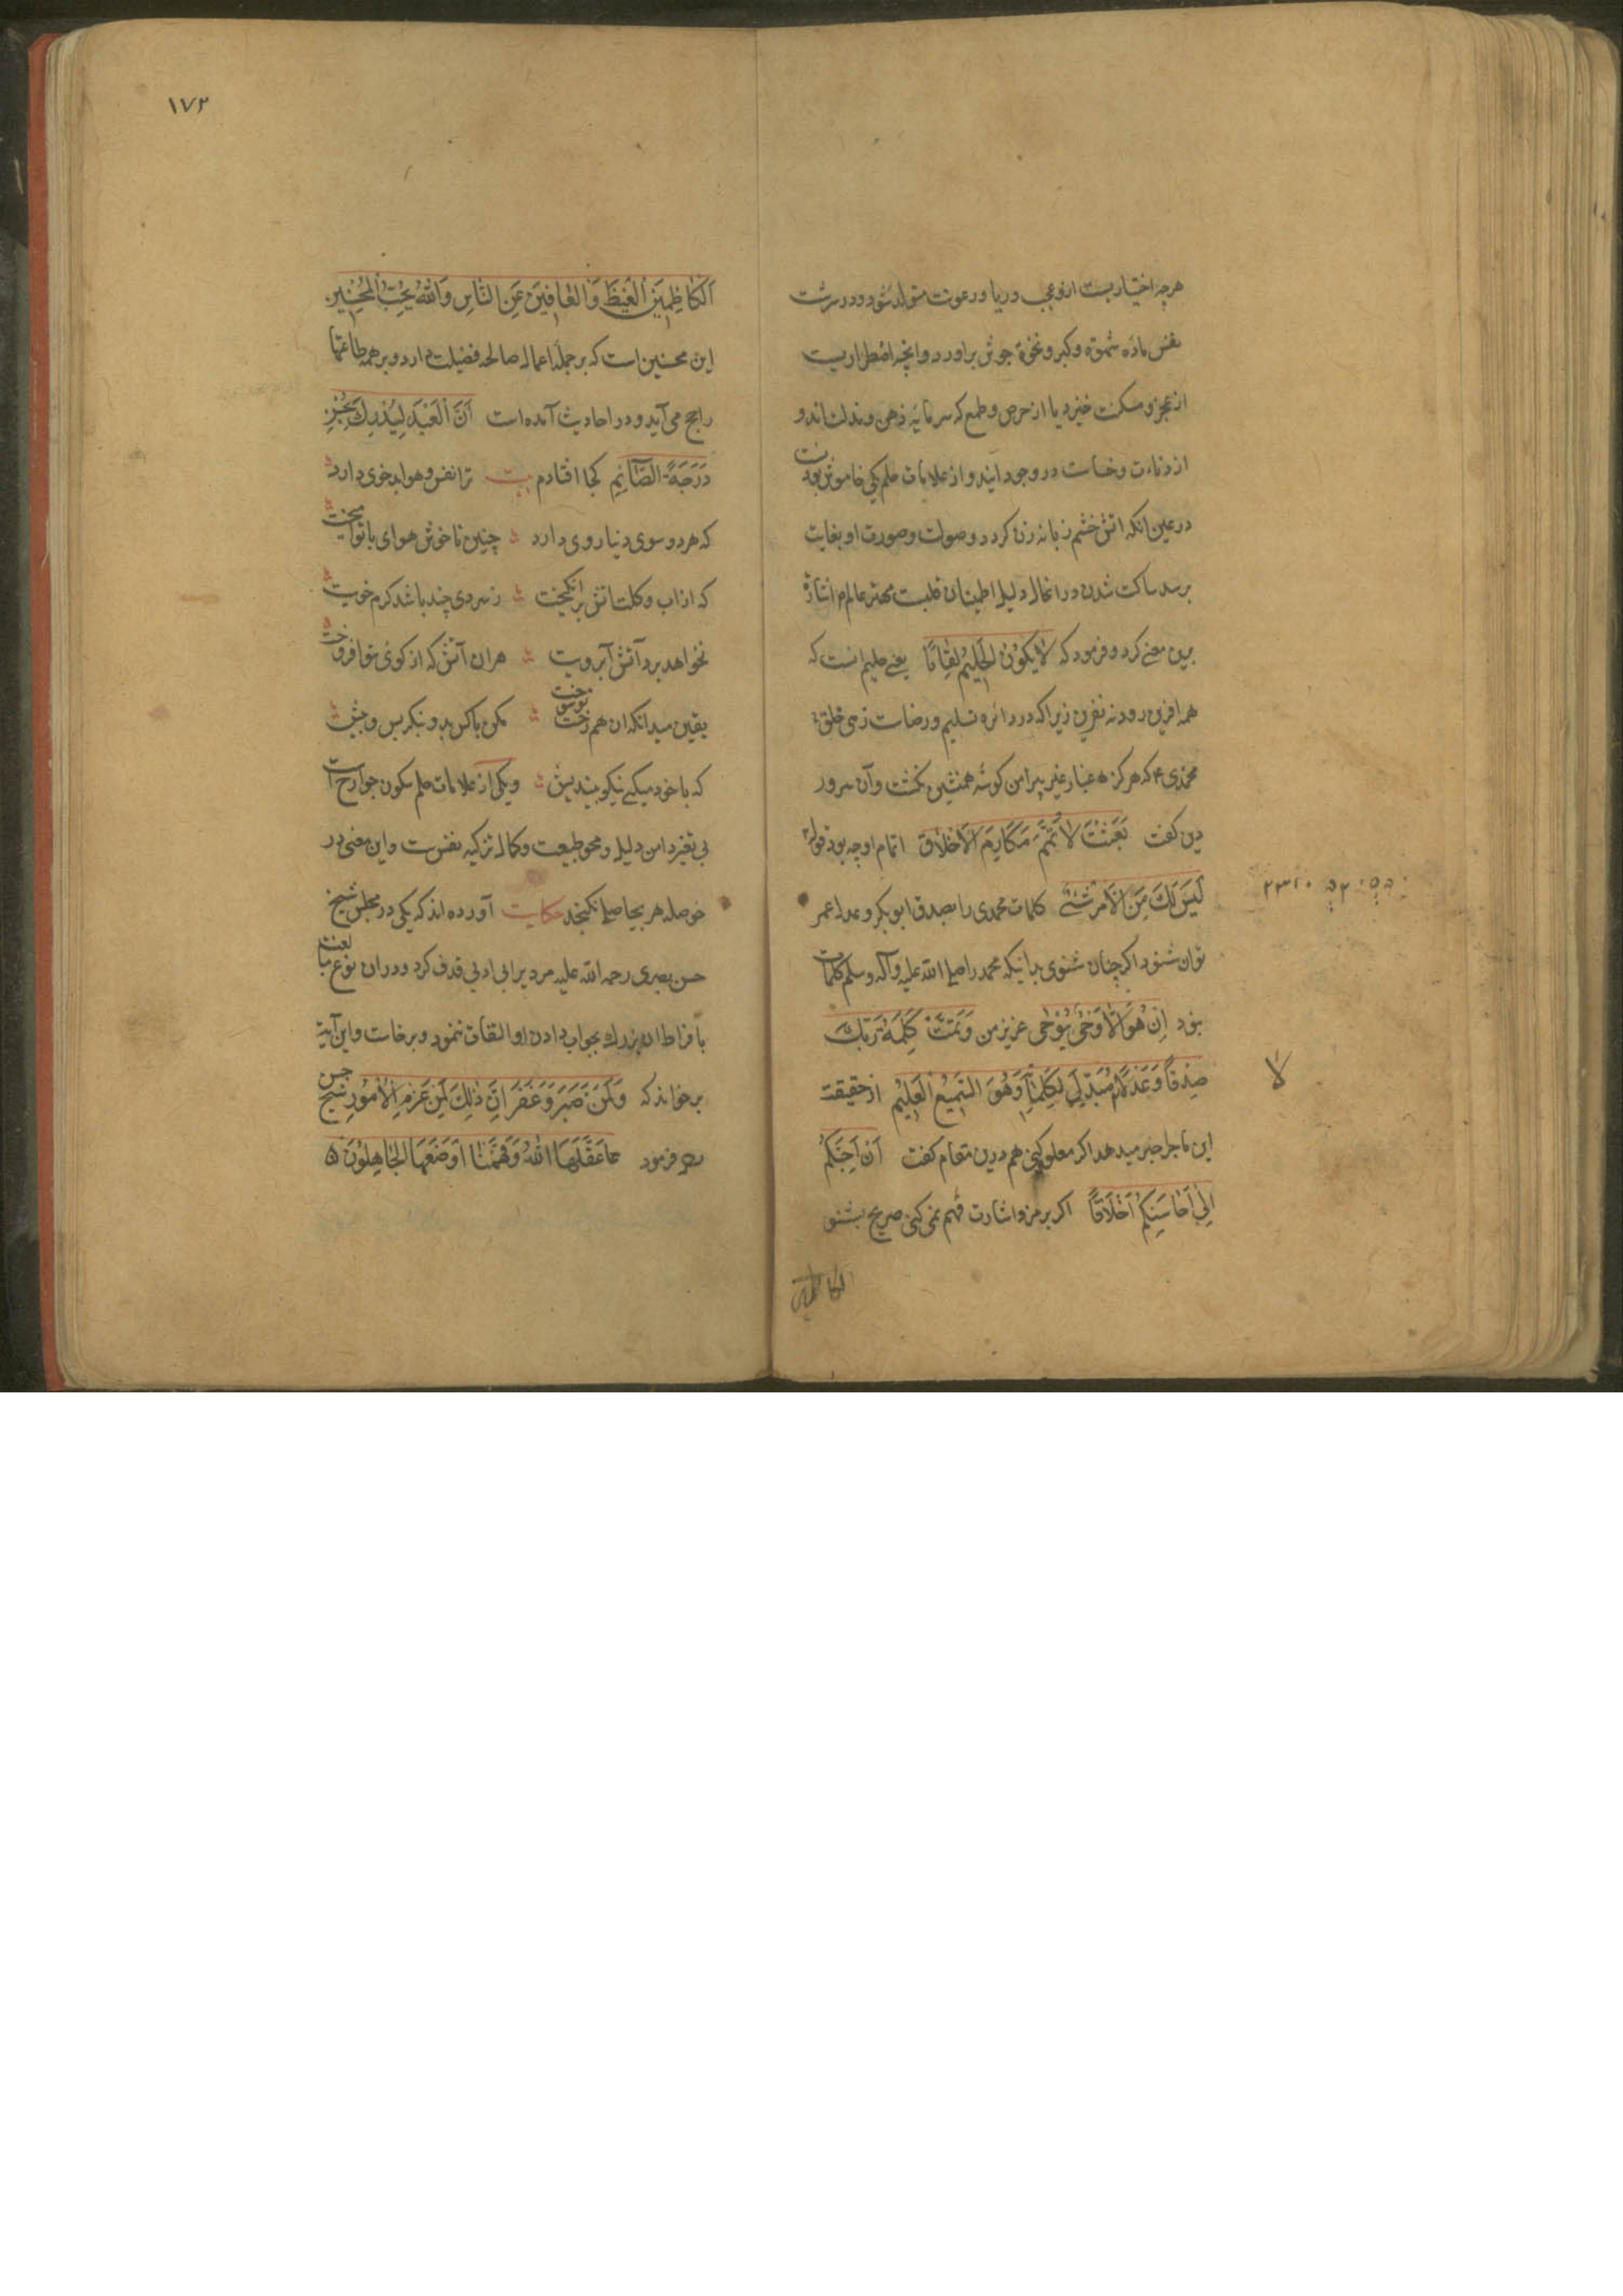 هرچه اختیاریست ازو عجب و ریا و رعونت متولد شود و در سرشت
نفس ماده شموه و کبر و نخوة جوش براورد و انچه اضطراریست
از عجز و مسکنت خیزد یا از حرص و طمع که سرمایه ذهن و مذلت اند و
از دناءت و خساست در وجود ایند و از علامات حلم یکی خاموش بودنست
در عین انکه اتش خشم زبانه زن کردد و صولت و صورت او بغایت
برسد ساکت شدن در انحال دلیل اطمینان قلبست مهتر عالم م اشارة
بدین معنے کرد و فرمود که لَا يَكُوْنُ الْحَلِيْمُ لِعَّانًا یعنے حلیم انست که
همه افرین رود نه نفرین زیرا که در دائره تسلیم و رضاست زهی خلق
محمدی م که هرکز غبار غیر پیرامن کوشه همنشین نکشت و آن سرور
دین کفت بُعِثْتُ لِاُتَمِّمَ مَكَارِمَ الْاَخْلَاقِ اتمام او چه بود قوله
لَيْسَ لَكَ مِنَ الْاَمْرِ شَئْے کلمات محمدی را بصدق ابوبکر و عدل عمر
توان شنود اکر چنان شنوی بدانیکه محمد را صلے الله علیه وآله وسلم کلمات
بود اِنْ هُوَ اِلَّا وَحْیٌ يُوْحٰی عزیز من وَتَمَّتْ كَلِمَةُ رَبِّكَ
صِدْقًا وَعَدْلًا مُبَدِّلَ لِكَلِمٰتِهٖ وَهُوَ السَّمِيْعُ الْعَلِيْمُ از حقیقت
لا
این ماجرا خبر میدهد اکر معلوم کنی هم درین مقام کفت اَنَّ اَحَبَّكُمْ
اِلَیَّ اَحَاسِنَكُمْ اَخْلَاقًا اکر برمز و اشارت فهم نمی کنی صریح بشنو
الکاظمین
١٧٢
اَلْكَاظِمِيْنَ الْغَيْظَ وَالْعَافِيْنَ عَنِ النَّاسِ وَاللّٰهُ يُحِبُّ الْمُحْسِنِيْنَ
این محسنین است که بر جمله اعمال صالحه فضیلت دارد و بر همه طاعتها
راجح می آید و در احادیث آمده است اَنَّ الْعَبْدَ لِيُدْرِكَ
دَرَجَةَ الصَّآئِمِ کجا افتادم بیت ترا نفس و هوا بد خوی دارد
که هر دو سوی دنیا روی دارد چنین ناخوش هوای با تو امیخت
که از اب و کلت اتش بر انکیخت ز سردی چند باشد کرم خویت
نخواهد برد آتش آبرویت هران آتش که از کوی تو افروخت
یقین میدانکه ان هم رخت تو سوخت مکن با کس بد و بنکر پس و پیش
که با خود میکنے نیکو بیندیش و یکی از علامات حلم سکون جوارح است
بی تغیر و این دلیل و محو طبیعت و کمال تزکیه نفس ست و این معنی در
حوصله هر بیحاصلی نکنجد حکایت آورده اند که یکی در مجلس شیخ
حسن بصری رحمه الله علیه مردیرا بی ادبی قذف کرد و دران نوع مبالغت
بافراط ان بزرك بجواب دادن او التفات ننمود و برخاست و این آیة
برخواند که وَلَمَنْ صَبَرَ وَغَفَرَ اِنَّ ذٰلِكَ لَمِنْ عَزْمِ الْاُمُوْرِ شیخ حسن
بصر فرمود عَقَلَهَا اللّٰهُ وَفَهَّمَنَا اَوْضَعَهَا الْجَاهِلُوْنَ